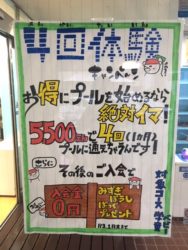 4回体験
キャンペーン
お得にプールを始めるなら
絶対イマ!
5500円で4回(1カ月)
プールに通えちゃうんです!
さらに
その後のご入会で
入会金
0円
みずぎ
ぼうし
ばっぐ
プレゼント
対象コース
ベビー
学童